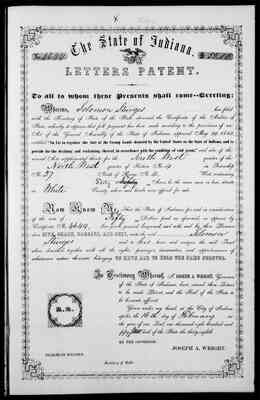 The State of Indiana.
LETTERS PATENT.
To all to whom these Presents shall come--Greeting:
Whereas, Solomon Sturges has filed
with the Secretary of State of the State aforesaid the Certificate of the Auditor of
State, whereby it appears that full payment has been made according to the provisions of an
Act of the General Assembly of the State of Indiana, approved May
entitled "An Act to regulate the sale of the Swamp Lands donated by the United States to the State of Indiana, and to
provide for the draining and reclaiming thereof, in accordance with the condition of said grant," and acts of the
annual Acts supplemental thereto for the North West quarter of the
North West quarter of Section No. in Township
No. 27 North of Range No. West containing
Forty Acres to the same more or less, situate
in White County, above said tracts were offered for sale.
Now Know Ye, That the State of Indiana, for and in consideration
of the sum of Fifty Dollars, paid as aforesaid, as appears by
Certificate No. 4644, has
GIVE, GRANT, BARGAIN, AND SELL, unto the said Solomon
Sturges and to
above described, together with all the rights, privileges, immunities, and appurtenances of
whatsoever nature thereunto belonging TO HAVE AND TO HOLD THE SAME FOREVER.
In Testimony Whereof, I, JOSEPH A. WRIGHT, Governor
of the State of Indiana, have caused these Letters
to be made Patent, and the Seal of the State to
be hereunto affixed.
Given under my hand, at the City of Indian-
apolis the 16th day of February in
the year of our Lord, one thousand eight hundred and
fifty and of the State the thirty-eighth
BY THE GOVERNOR:
JOSEPH A. WRIGHT.
Secretary of State.